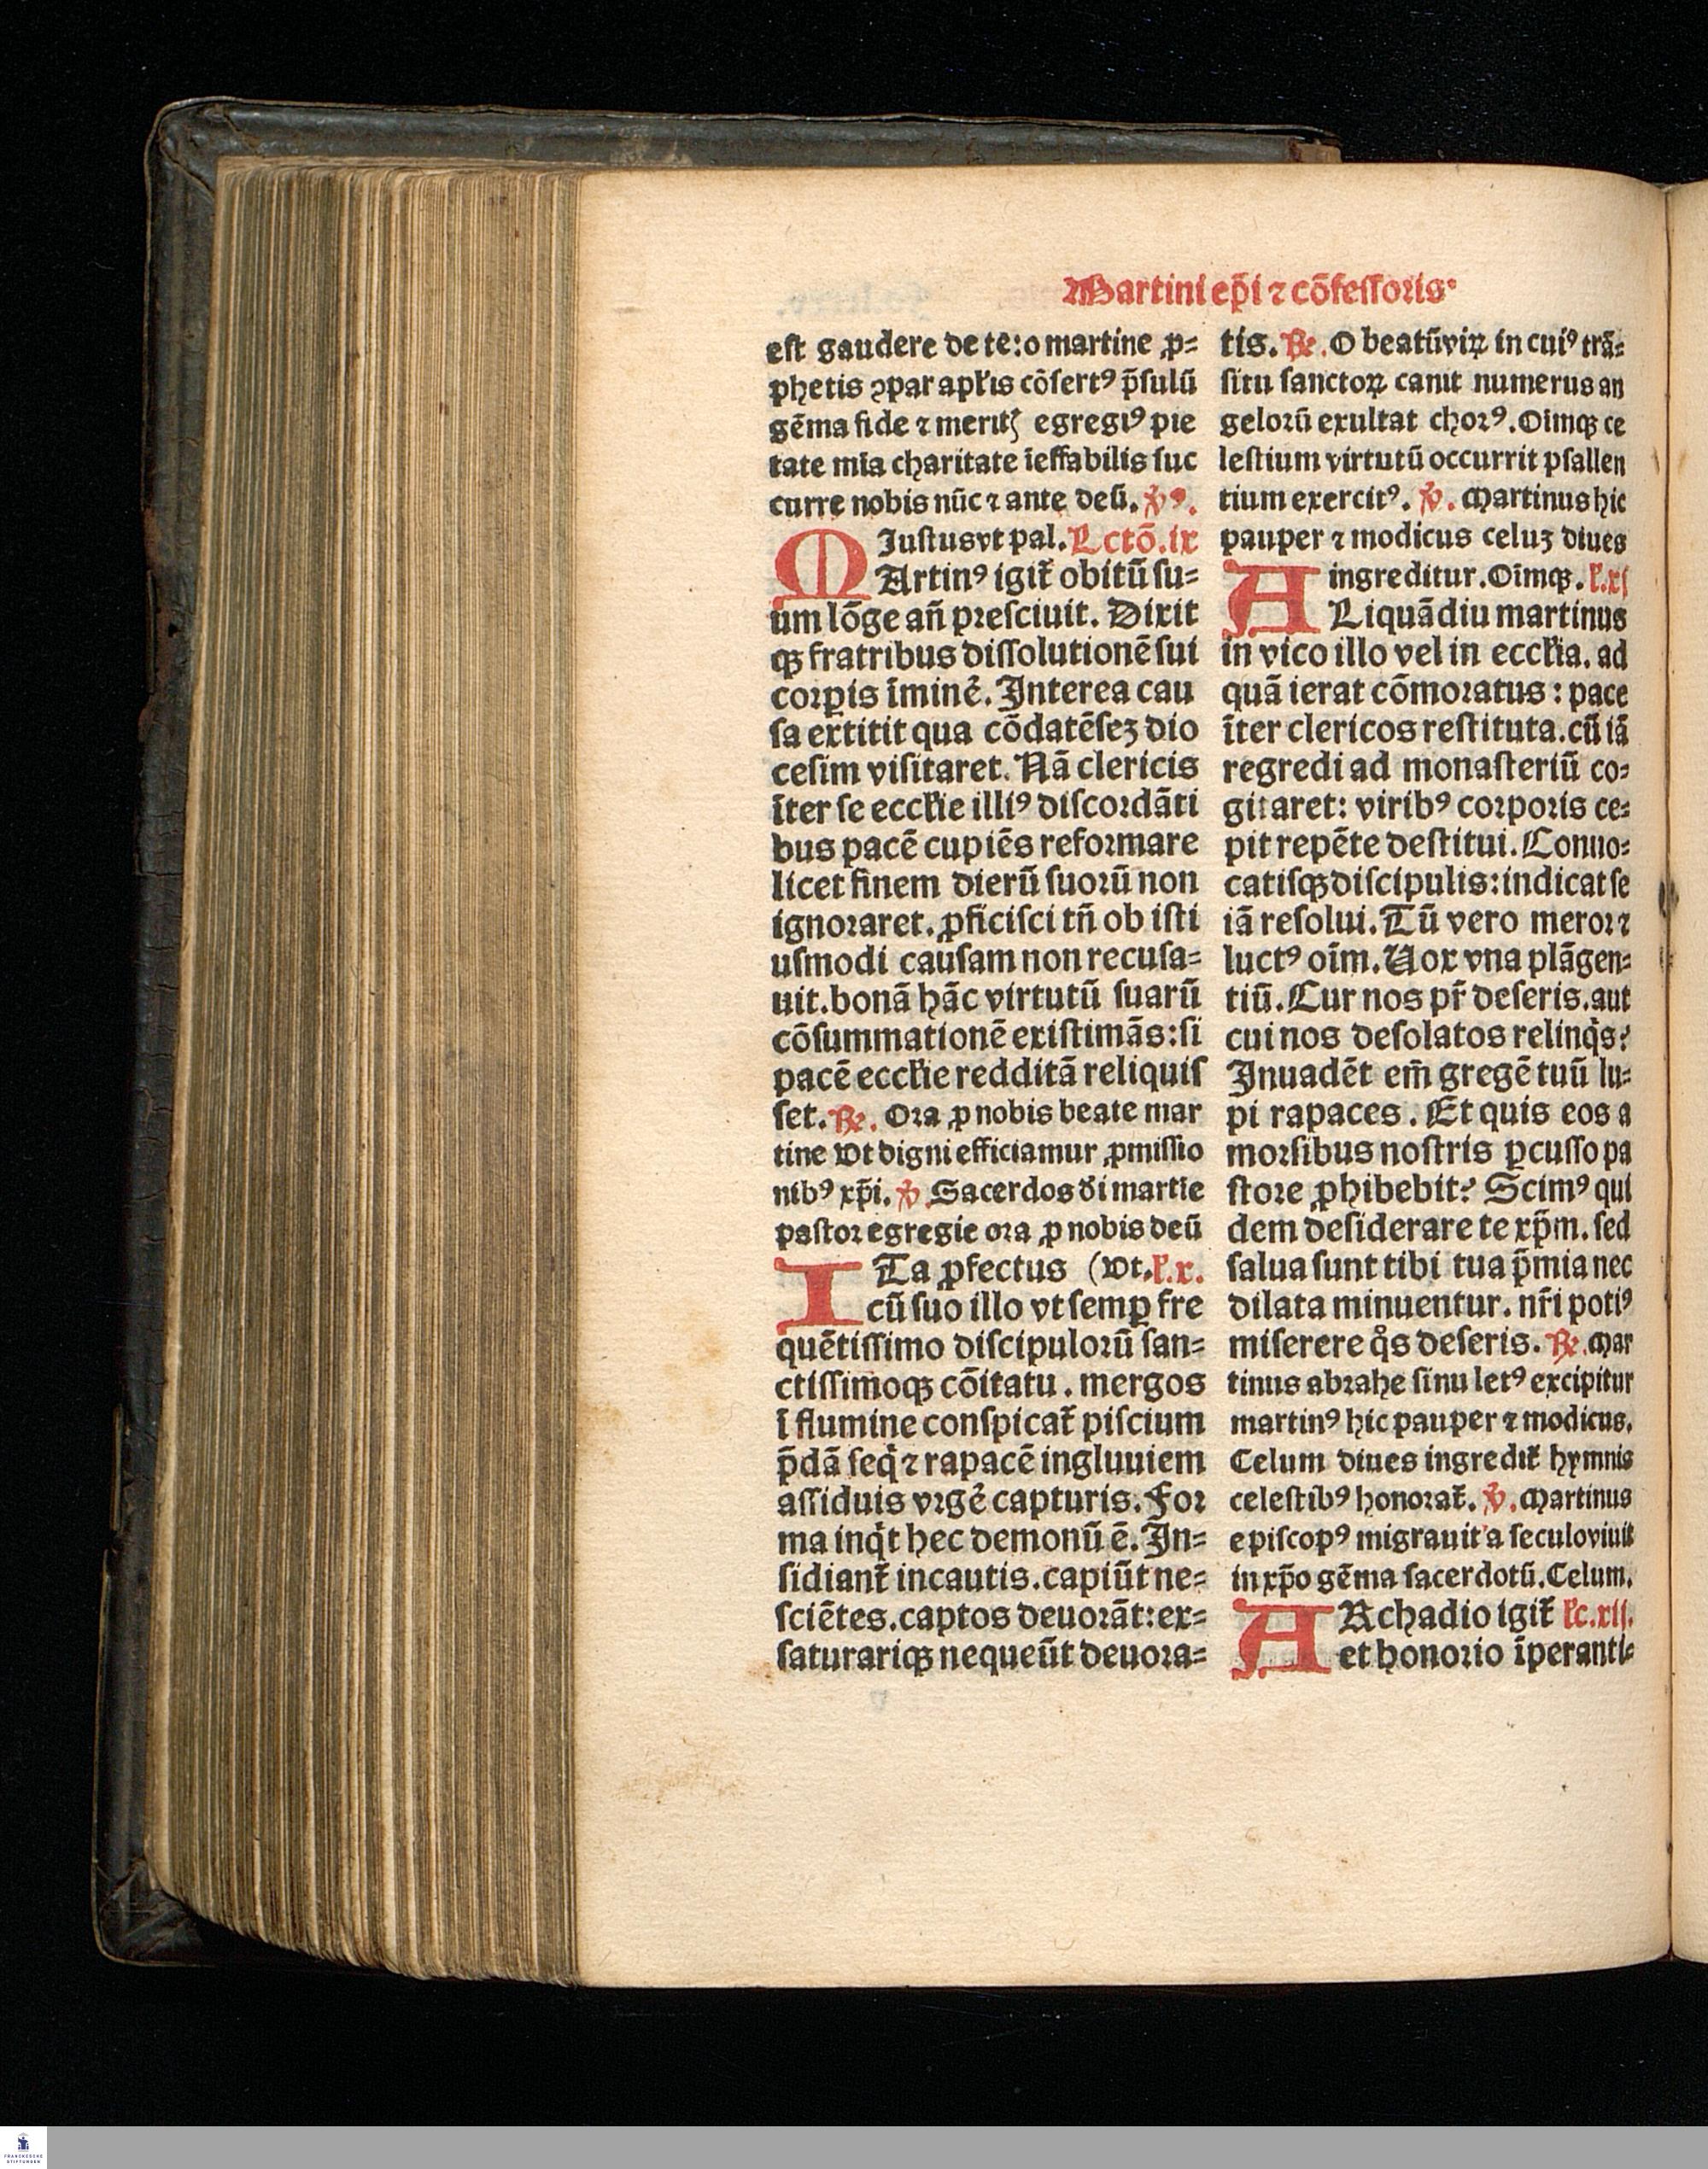 Martini ep̄i ⁊ cōfeſſoꝛis·
eſt gaudere de te:o martine ꝓ⸗
phetis ꝯpar apl̓is cōſertꝰ p̄ſulū
gēma fide ⁊ merit egregiꝰ pie
tate mīa charitate īeffabilis ſuc
curre nobis nūc ⁊ ante deū. ꝟꝰ.
Juſtus vt pal. Lctō.ix
MArtinꝰ igit᷑ obitū ſu⸗
um lōge an̄ pꝛeſciuit. Dixit
qꝫ fratribus diſſolutionē ſui
coꝛꝑis īminē. Interea cau
ſa extitit qua cōdatēſeꝫ dio
ceſim viſitaret. Nā clericis
īter ſe eccl̓ie illiꝰ diſcoꝛdāti
bus pacē cupiēs refoꝛmare
licet finem dierū ſuoꝛū non
ignoꝛaret. ꝓficiſci tn̄ ob iſti
uſmodi cauſam non recuſa⸗
uit. bonā hāc virtutū ſuarū
cōſummationē exiſtimās: ſi
pacē eccl̓ie redditā reliquiſ
ſet. ℞. Oꝛa ꝓ nobis beate mar
tine Ut digni efficiamur ꝓmiſſio
nibꝰ xp̄i. ꝟ. Sacerdos d̓i martīe
paſtoꝛ egregie oꝛa ꝓ nobis deū
ITa ꝓfectus (Ut. l̓.x.
cū ſuo illo vt ſemꝑ fre
quētiſſimo diſcipuloꝛū ſan⸗
ctiſſimoqꝫ cōitatu. mergos
ī flumine conſpicat᷑ piſcium
p̄dā ſeq̇ ⁊ rapacē ingluuiem
aſſiduis vꝛgē capturis. Foꝛ
ma inq̇t hec demonū ē. In⸗
ſidiant᷑ incautis. capiūt ne⸗
ſciētes. captos deuoꝛāt: ex⸗
ſaturariqꝫ nequeūt deuoꝛa⸗
tis. ℞. O beatū viꝝ in cuiꝰ trā⸗
ſitu ſanctoꝝ canit numerus an
geloꝛū exultat choꝛꝰ. Oīmqꝫ ce
leſtium virtutū occurrit pſallen
tium exercitꝰ. ꝟ. Martinus hic
pauper ⁊ modicus celuꝫ diues
ingreditur. Oīmqꝫ. l̓.xj
ALiquādiu martinus
in vico illo vel in eccl̓ia. ad
quā ierat cōmoꝛatus: pace
īter clericos reſtituta. cū iā
regredi ad monaſteriū co⸗
gitaret: viribꝰ coꝛpoꝛis ce⸗
pit repēte deſtitui. Conuo⸗
catiſqꝫ diſcipulis: indicat ſe
iā reſolui. Tū vero meroꝛ ⁊
luctꝰ oīm. Uox vna plāgen⸗
tiū. Cur nos pr̄ deſeris. aut
cui nos deſolatos relinq̇s?
Inuadēt em̄ gregē tuū lu⸗
pi rapaces. Et quis eos a
moꝛſibus noſtris ꝑcuſſo pa
ſtoꝛe ꝓhibebit? Scimꝰ qui
dem deſiderare te xp̄m. ſed
ſalua ſunt tibi tua p̄mia nec
dilata minuentur. nr̄i potiꝰ
miſerere q̊s deſeris. ℞. Mar
tinus abꝛahe ſinu letꝰ excipitur
martinꝰ hic pauper ⁊ modicus.
Celum diues ingredit᷑ hymnis
celeſtibꝰ honoꝛat᷑. ꝟ. Martinus
epiſcopꝰ migrauit a ſeculo viuit
in xp̄o gēma ſacerdotū. Celum.
ARchadio igit᷑ l̓c.xij.
et honoꝛio īperanti⸗
FRANCKESCHE
STIFTUNGEN